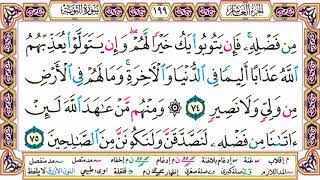 الجزء العاشر ١٩٩ سورة التوبة
مِن فَضْلِهِۦۚ فَإِن يَتُوبُوا۟ يَكُ خَيْرًا لَّهُمْۖ وَإِن يَتَوَلَّوْا۟ يُعَذِّبْهُمُ
ٱللَّهُ عَذَابًا أَلِيمًا فِى ٱلدُّنْيَا وَٱلْءَاخِرَةِۚ وَمَا لَهُمْ فِى ٱلْأَرْضِ
مِن وَلِىٍّ وَلَا نَصِيرٍ ٧٤ وَمِنْهُم مَّنْ عَٰهَدَ ٱللَّهَ لَئِنْ
ءَاتَىٰنَا مِن فَضْلِهِۦ لَنَصَّدَّقَنَّ وَلَنَكُونَنَّ مِنَ ٱلصَّٰلِحِينَ ٧٥